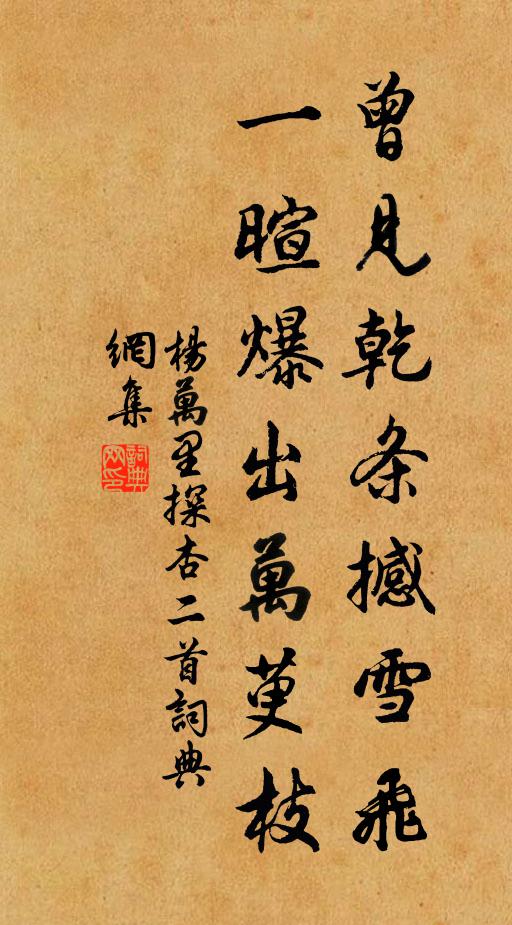 曾見乾条撼雪飛
一暄爆出萬茰枝
楊萬里探杏二首詞典
網集
詞典
网印